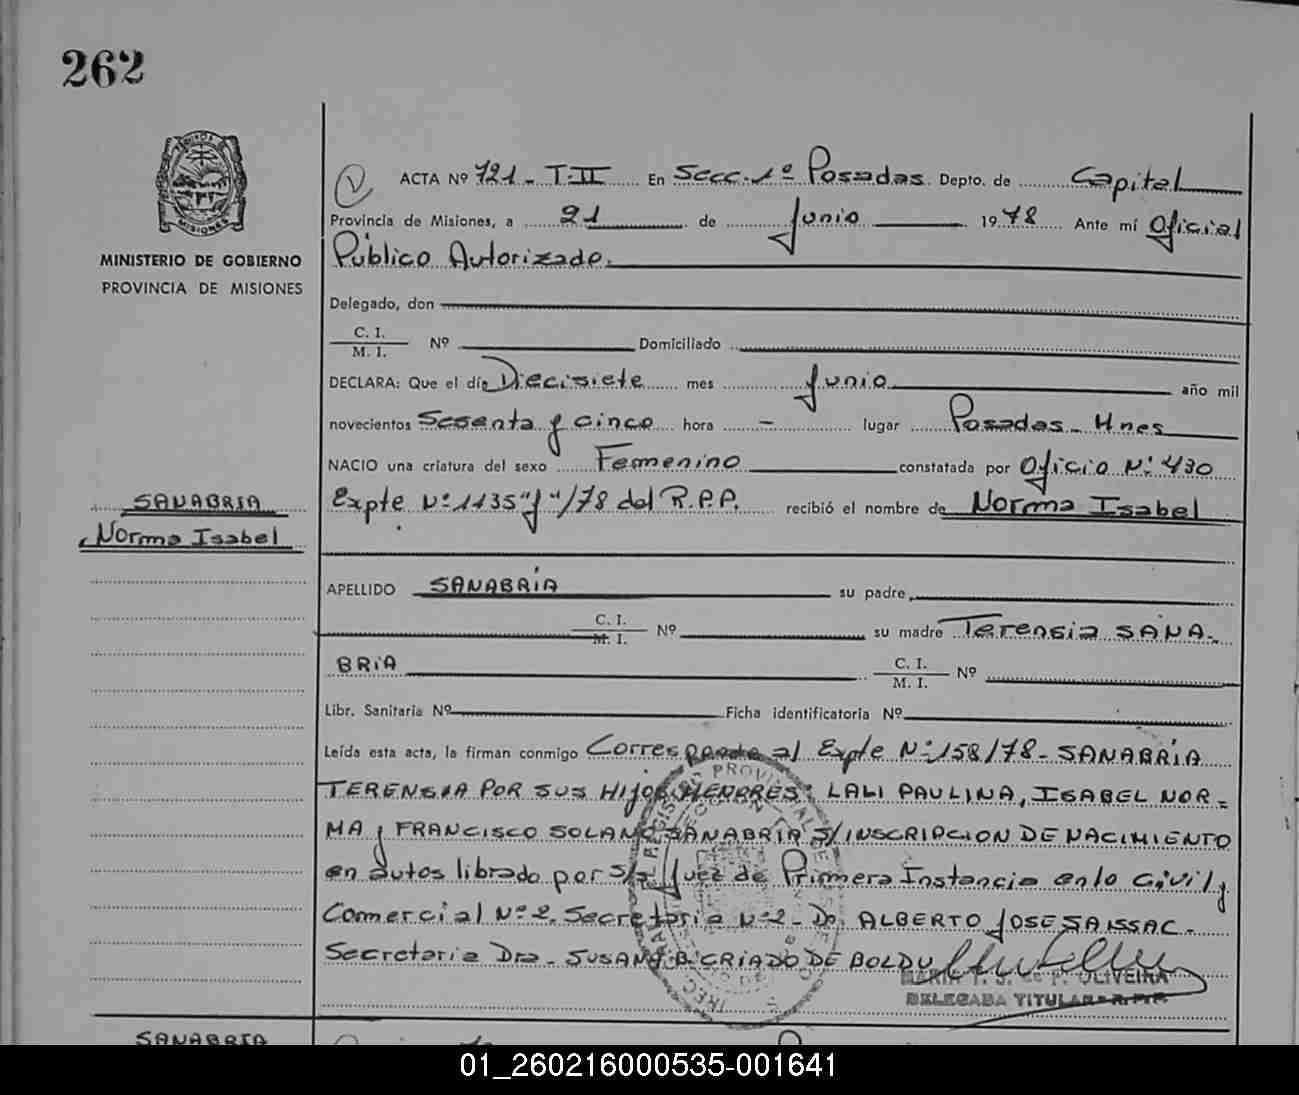 262
MISIONES
MINISTERIO DE GOBIERNO
PROVINCIA DE MISIONES
ACTA Nº 721 - T.II En Secc. 1º Posadas Depto. de Capital
Provincia de Misiones, a 21 de Junio 1978 Ante mí Oficial
Público Autorizado.
Delegado, don
C. I.
M. I. Nº Domiciliado
DECLARA: Que el día Diecisiete mes Junio año mil
novecientos Sesenta y cinco hora - lugar Posadas - Mnes
NACIO una criatura del sexo Femenino constatada por Oficio Nº 430
SANABRIA
Norma Isabel
Expte Nº 1135 "J"/78 del R.P.P. recibió el nombre de Norma Isabel
APELLIDO SANABRÍA su padre,
C. I.
M. I. Nº su madre Terensia SANA-
BRIA C. I.
M. I. Nº
Libr. Sanitaria Nº Ficha identificatoria Nº
Leída esta acta, la firman conmigo Corresponde al Expte Nº 158/78 - SANABRÍA
TERENSIA POR SUS HIJOS MENORES: LALI PAULINA, ISABEL NOR=
MA y FRANCISCO SOLANO SANABRÍA S/INSCRIPCION DE NACIMIENTO
en autos librado por S/S Juez de Primera Instancia en lo Civil y
Comercial Nº 2. Secretaria Nº 2 - Dr. ALBERTO JOSE SAISSAC -
Secretaria Dra. SUSANA B. CRIADO DE BOLDU
MARIA T. J. de P. OLIVEIRA
DELEGADA TITULAR - R.P.P.
SANABRIA
01_260216000535-001641